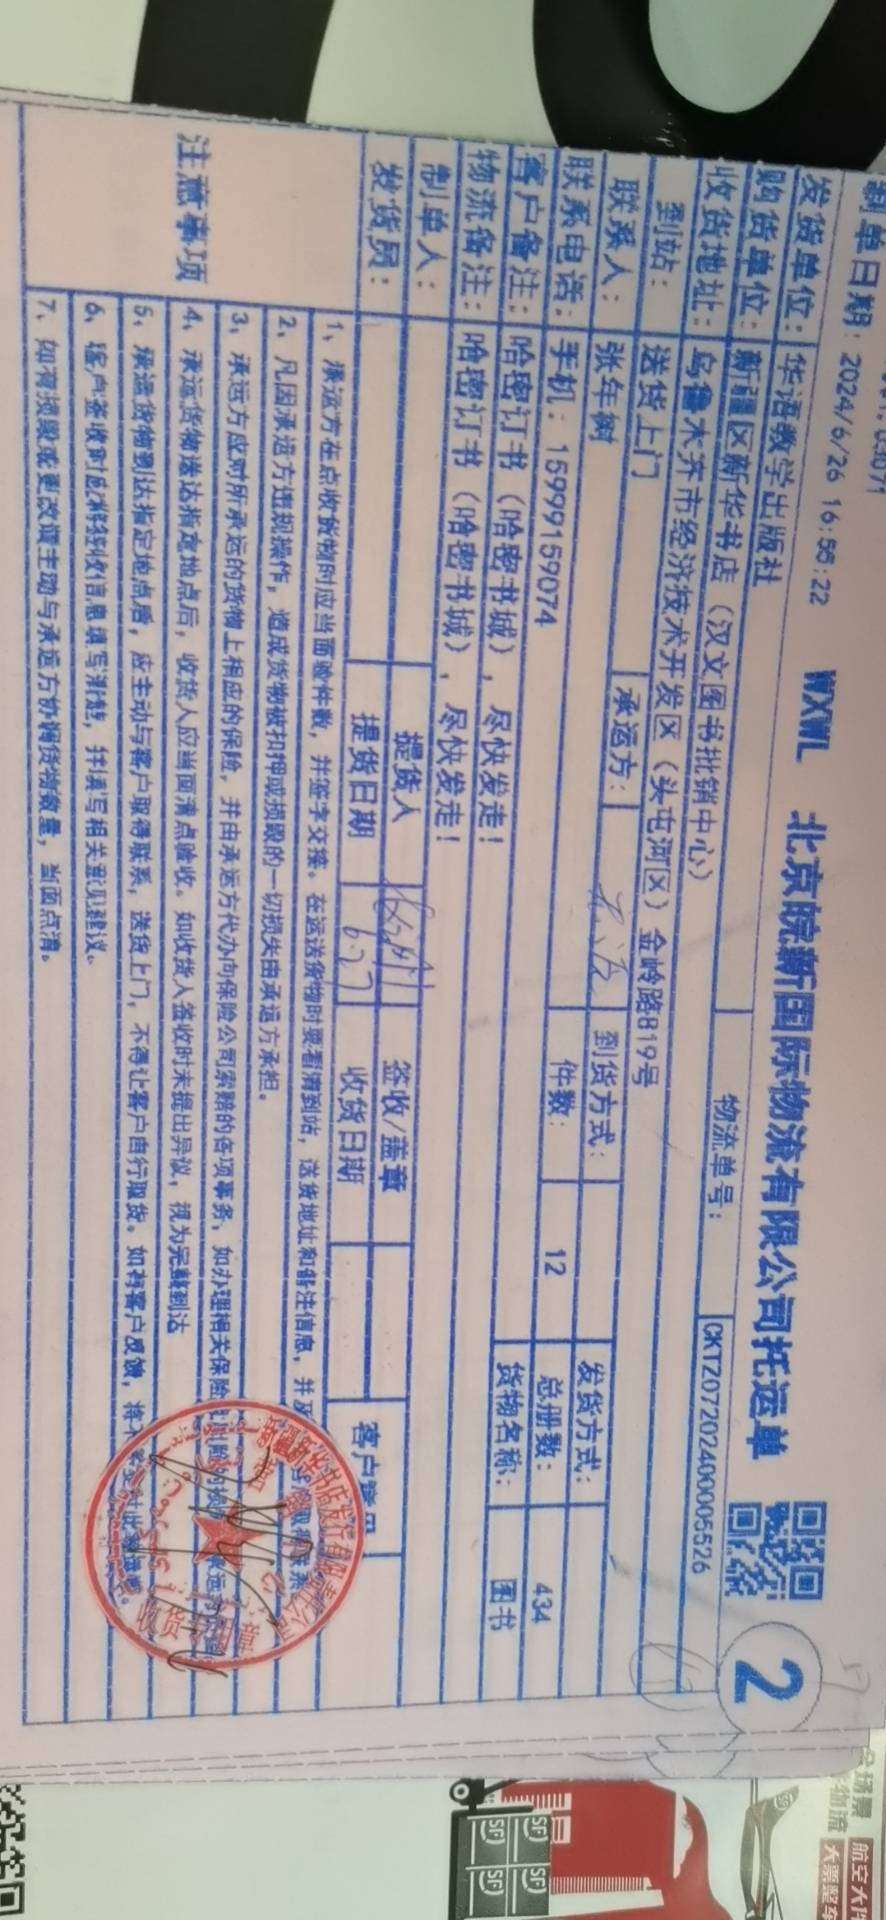 制单日期：2024/6/26 16:55:22
WXWL 北京皖新国际物流有限公司托运单
2
发货单位：华语教学出版社
购货单位：新疆区新华书店（汉文图书批销中心）
物流单号：CKTZ0720240005526
收货地址：乌鲁木齐市经济技术开发区（头屯河区）金岭路819号
到站：送货上门
承运方：
到货方式：
发货方式：
联系人：张年树
联系电话：手机：15999159074
件数：12
总册数：434
客户备注：哈密订书（哈密书城），尽快发走！
货物名称：图书
物流备注：哈密订书（哈密书城），尽快发走！
制单人：
提货人
签收/盖章
发货员：
提货日期 6.27
收货日期
注意事项
1、承运方在点收货物时应当面验件数，并签字交接。在运送货物时要看清到站，送货地址和备注信息，并及
2、凡因承运方违规操作，造成货物被扣押或损毁的一切损失由承运方承担。
3、承运方应对所承运的货物上相应的保险，并由承运方代办向保险公司索赔的各项事务，如办理相关保险
4、承运货物送达指定地点后，收货人应当面清点验收。如收货人签收时未提出异议，视为完整到达
5、承运货物到达指定地点后，应主动与客户取得联系，送货上门，不得让客户自行取货。如有客户反馈，将
6、客户签收时应准确将到货信息填写清楚，并填写相关意见建议。
7、如有损毁或更改请主动与承运方协调货物数量，当面点清。
收货专用章
航空大件
大票整车
SF
SF
SF
SF